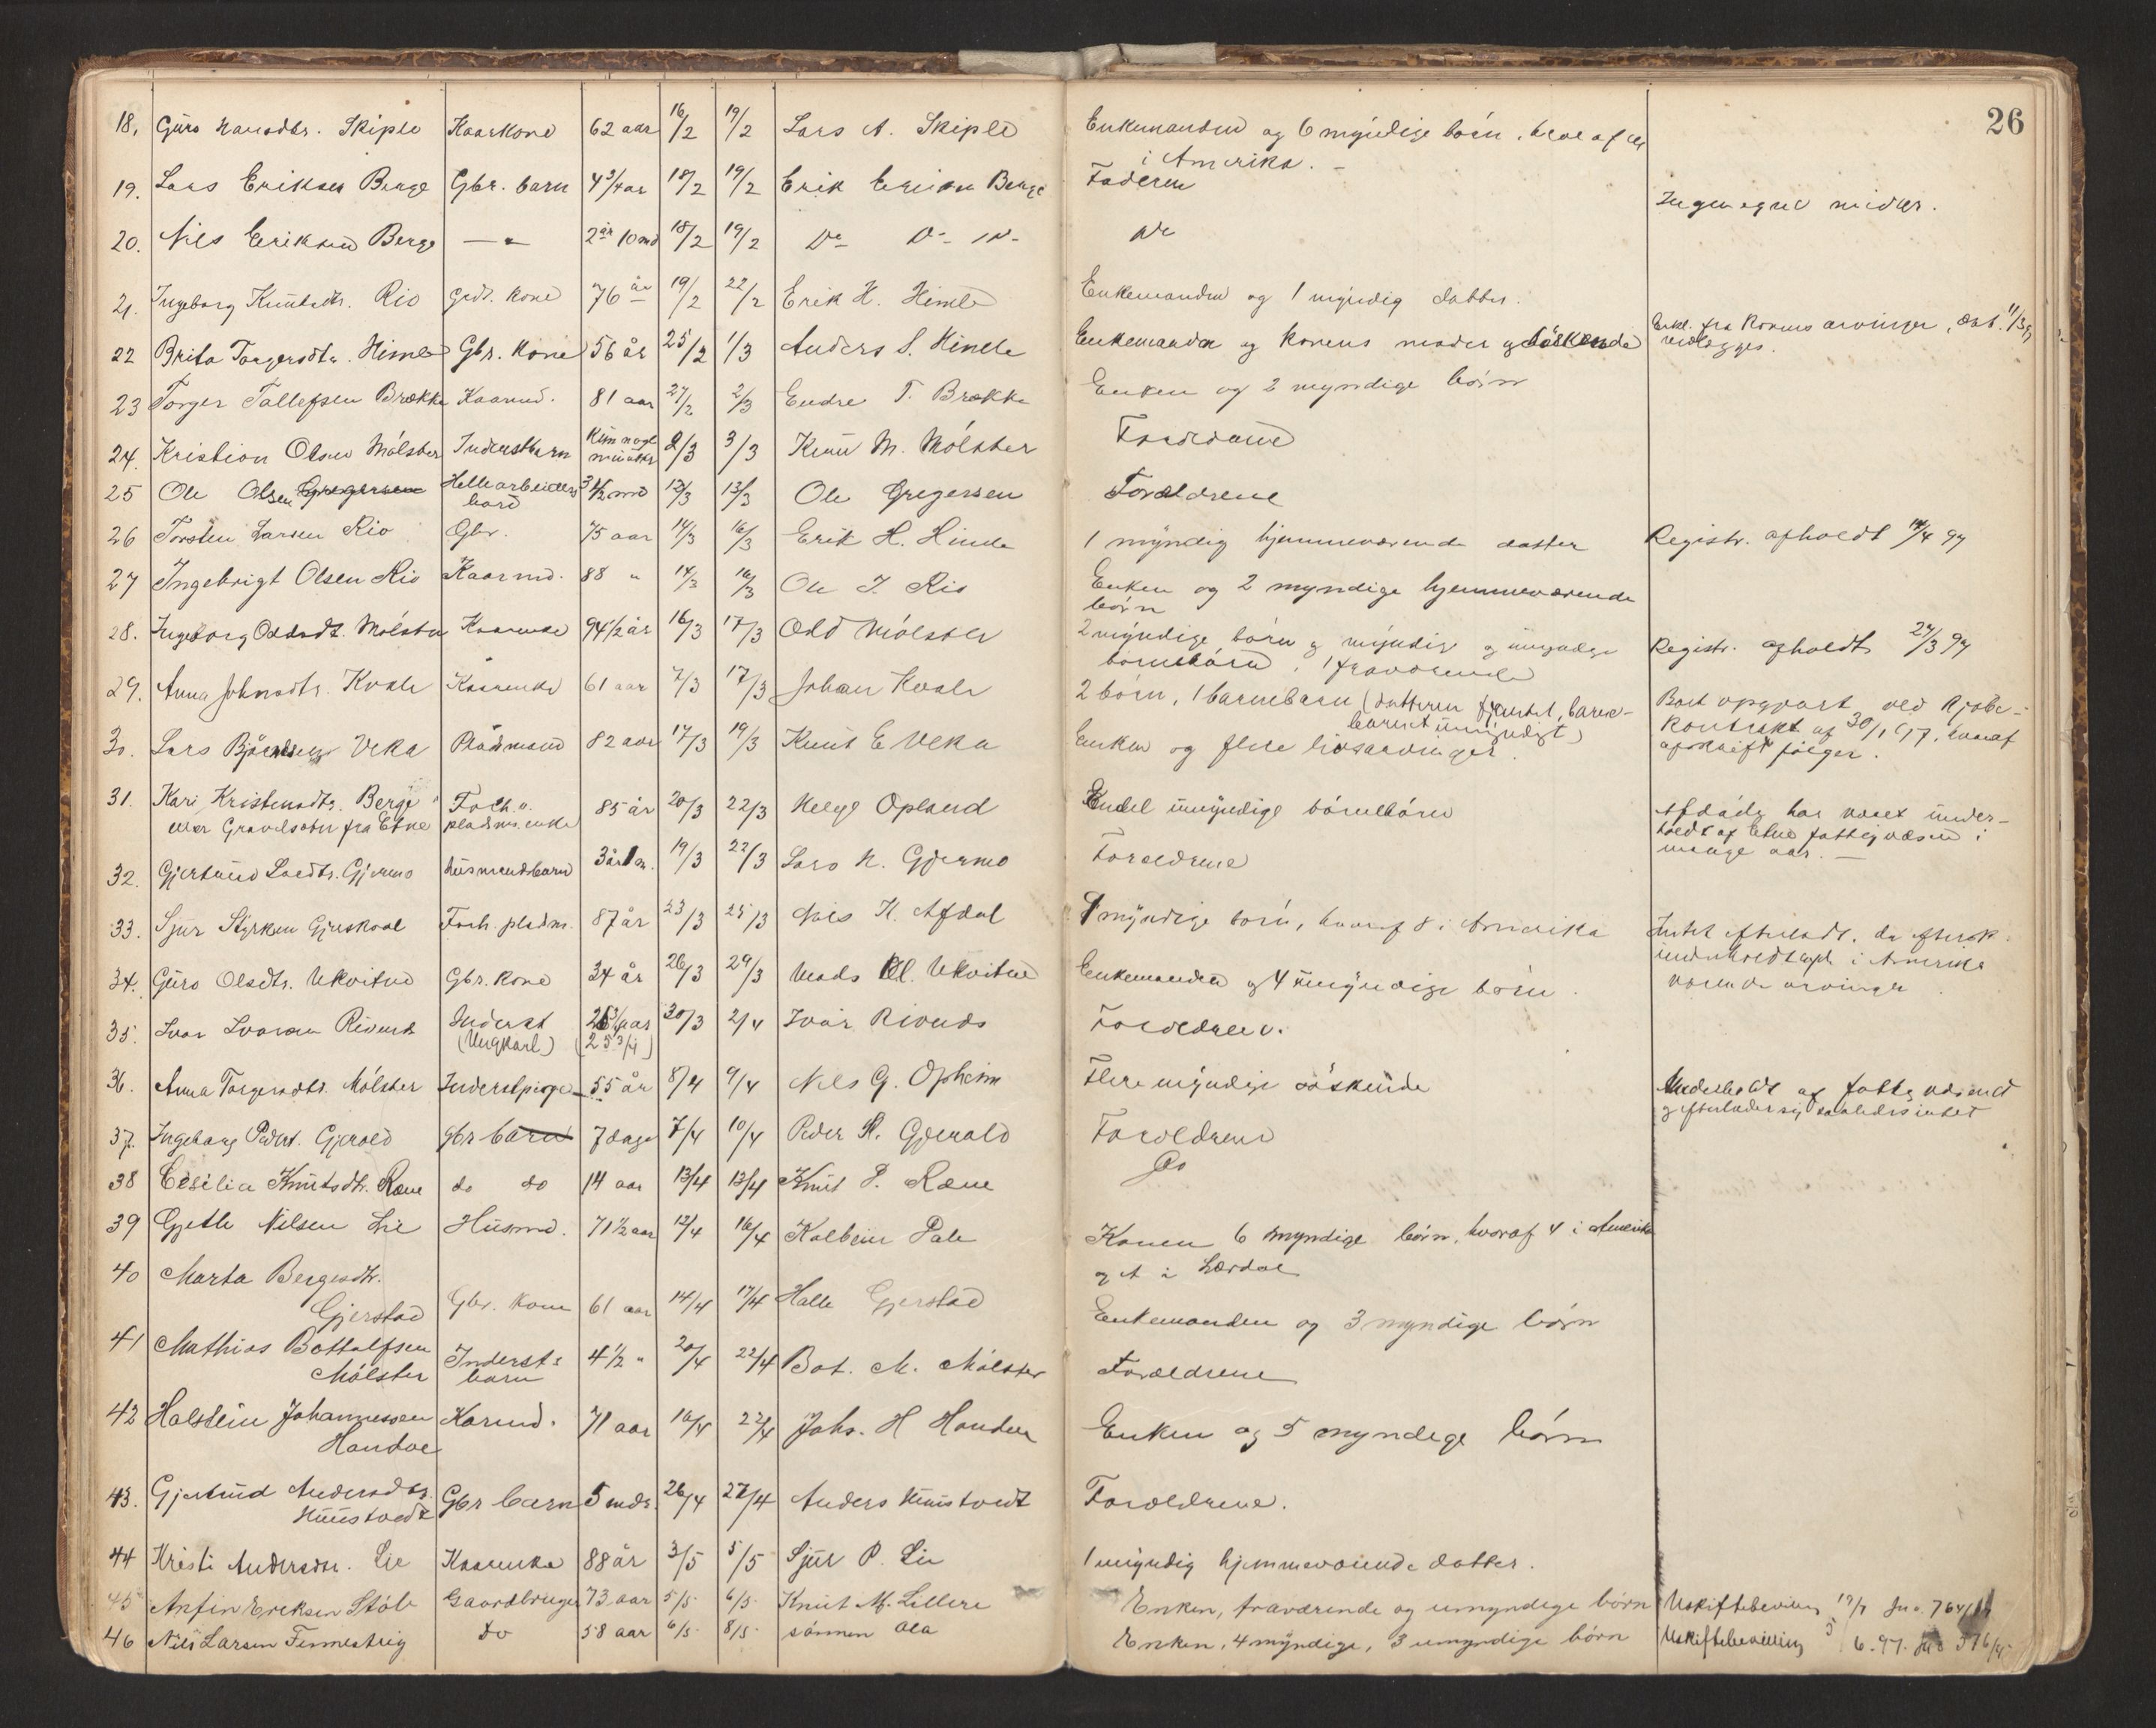 26
18. Guro Larsdtr. Skiple Kaarkone 62 aar 16/2 19/2 Lars A. Skiple Enkemanden og 6 myndige børn, hvoraf
i Amerika. -
19. Lars Eriksen Berge Gbr. barn 4 3/4 ar 18/2 19/2 Erik Eriksen Berge Faderen Ingen egne midler.
20. Nils Eriksen Berge — " 2 år 10 md 18/2 19/2 Do Do Do Do
21. Ingeborg Knutsdtr. Rio Grdb. kone 76 år 19/2 22/2 Erik H. Himle Enkemanden og 1 myndig datter.
22 Brita Torgersdtr. Himle Gbr. Kone 56 år 25/2 1/3 Anders S. Himle Enkemanden og konens moder og søskende Erkl. fra konens arvinger, dat. 11/3 97
vedlægges.
23 Torger Tollefsen Brække Kaarmd. 81 aar 27/2 2/3 Endre T. Brække Enken og 2 myndige børn
24. Kristian Olsen Mølster Inderstbarn Kun nogle
minutter 2/3 3/3 Knut M. Mølster Forældrene
25 Ole Olsen Gregersen Hellearbeiders
barn 3 1/2 md 12/3 13/3 Ole Gregersen Forældrene
26 Torsten Larsen Rio Gbr. 75 aar 14/3 16/3 Erik H. Himle 1 myndig hjemmeværende datter Registr. afholdt 14/4 97
27 Ingebrigt Olsen Rio Kaarmd. 88 " 14/3 16/3 Ole I. Rio Enken og 2 myndige hjemmeværende
børn
28. Ingeborg Oddsdt. Mølster Kaarenke 94 1/2 år 16/3 17/3 Odd Mølster 2 myndige børn og myndige og umyndige
børnebørn, 1 fraværende Registr. afholdt 27/3 97
29. Anna Johnsdtr. Kvale Kaarenke 61 aar 7/3 17/3 Johan Kvale 2 børn, 1 barnebarn (datteren fravæd, barne-
barnet umyndigt) Boet opgjort ved Kjøbe-
kontrakt af 30/1 97, hvoraf
afskrift følger.
30. Lars Bjørnsen Veka Pladsmand 82 aar 17/3 19/3 Knut E Veka Enken og flere livsarvinger.
31. Kari Kristensdtr. Berge
eller Gravdsæter fra Etne Forh. v.
pladsms. enke 85 år 20/3 22/3 Helge Opland Endel umyndige børnebørn Afdøde har været under-
holdt af Etne fattigvæsen i
mange aar. —
32. Gjertrud Larsdtr. Gjermo Husmandsbarn 3 år 1 m. 19/3 22/3 Lars N. Gjermo Forældrene
33. Sjur Styrksen Gjuskval Forh. pladsm. 87 år 23/3 25/3 Nils K. Afdal 9 myndige børn, hvoraf 8 i Amerika Intet efterladt, da afdøde
underholdtes af i Amerika
værende arvinger
34. Guro Olsdtr. Ukvitne Gbr. kone 34 år 26/3 29/3 Mads Ol. Ukvitne Enkemanden og 4 umyndige børn.
35. Ivar Ivarsen Rivends Inderst
(Ungkarl) 26 3/4 aar
(25 3/4) 30/3 2/4 Ivar Rivends Forældrene.
36. Anna Torgersdtr. Mølster Inderstpige 55 år 8/4 9/4 Nils G. Opheim Flere myndige søskende Underholdt af fattigvæsenet
og efterlader sig saaledes intet
37. Ingeborg Pedersd. Gjerald Gbr barn 7 dage 7/4 10/4 Peder K. Gjerald Forældrene
38 Cesilia Knutsdtr. Røne do do 14 aar 13/4 13/4 Knut P. Røne Do
39 Gjetle Nilsen Lie Husmd. 71 1/2 aar 12/4 16/4 Kolbein Dale Konen 6 myndige børn, hvoraf 4 i Amerika
og et i Lærdal
40 Marta Bergesdtr.
Gjerstad Gbr. kone 61 aar 14/4 17/4 Halle Gjerstad Enkemanden og 3 myndige børn
41 Mathias Bottolfsen
Mølster Inderst-
barn 4 1/2 " 20/4 22/4 Bot. M. Mølster Forældrene
42 Halstein Johannessen
Hondve Karmd. 71 aar 16/4 22/4 Johs. H Hondve Enken og 5 myndege børn
43. Gjertrud Andersdtr.
Hunstvedt Gbr barn 5 mdr. 26/4 27/4 Anders Hunstvedt Forældrene.
44 Kristi Andersdtr. Lie Kaarenke 88 år 3/5 5/5 Sjur P. Lie 1 myndig hjemmeværende datter.
45 Anfin Eriksen Støle Gaardbruger 73 aar 5/5 6/5 Knut M. Lillere Enken, fraværende og umyndege børn Uskiftebevilling 19/7 Jno. 764/97
46 Nils Larsen Finnestrig do 58 aar 6/5 8/5 sønnen Ola Enken, 4 myndige, 3 umyndige børn Uskiftebevilling 5/6.97. Jno 576/97